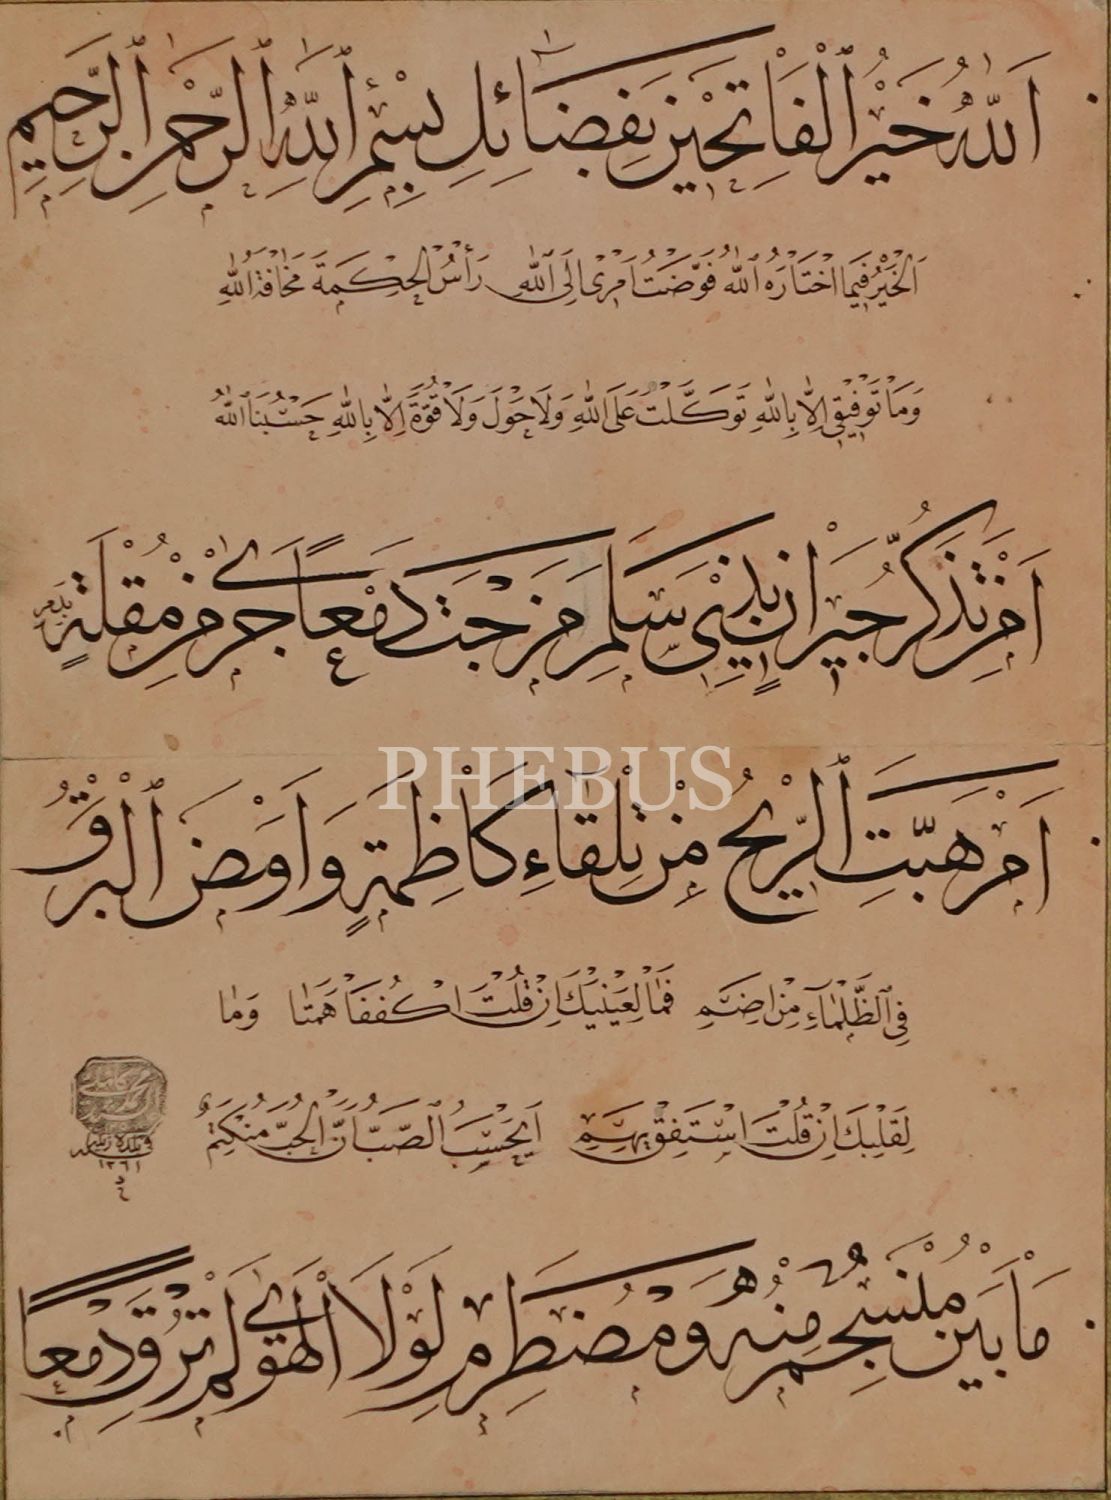 اَللّٰهُ خَيْرُ ٱلْفَاتِحِيْنَ بِفَضَائِلِ بِسْمِ ٱللّٰهِ ٱلرَّحْمٰنِ ٱلرَّحِيْمِ
اَلْخَيْرُ فِيْمَا اخْتَارَهُ اللّٰهُ فَوَّضْتُ اَمْرِى اِلَى اللّٰهِ رَأْسُ الْحِكْمَةِ مَخَافَةُ اللّٰهِ
وَمَا تَوْفِيْقِى اِلَّا بِاللّٰهِ تَوَكَّلْتُ عَلَى اللّٰهِ وَلَا حَوْلَ وَلَا قُوَّةَ اِلَّا بِاللّٰهِ حَسْبُنَا اللّٰهُ
اَمِنْ تَذَكُّرِ جِيْرَانٍ بِذِيْ سَلَمٍ مَزَجْتَ دَمْعًا جَرٰى مِنْ مُقْلَةٍ بِدَمِ
اَمْ هَبَّتِ ٱلرِّيْحُ مِنْ تِلْقَاءِ كَاظِمَةٍ وَاَوْمَضَ ٱلْبَرْقُ
PHEBUS
فِي ٱلظَّلْمَاءِ مِنْ اِضَمِ فَمَا لِعَيْنَيْكَ اِنْ قُلْتَ اكْفُفَا هَمَتَا وَمَا
لِقَلْبِكَ اِنْ قُلْتَ اسْتَفِقْ يَهِمِ اَيَحْسَبُ ٱلصَّبُّ اَنَّ الْحُبَّ مُنْكَتِمٌ
مَا بَيْنَ مُنْسَجِمٍ مِنْهُ وَمُضْطَرِمِ لَوْلَا ٱلْهَوٰى لَمْ تُرِقْ دَمْعًا